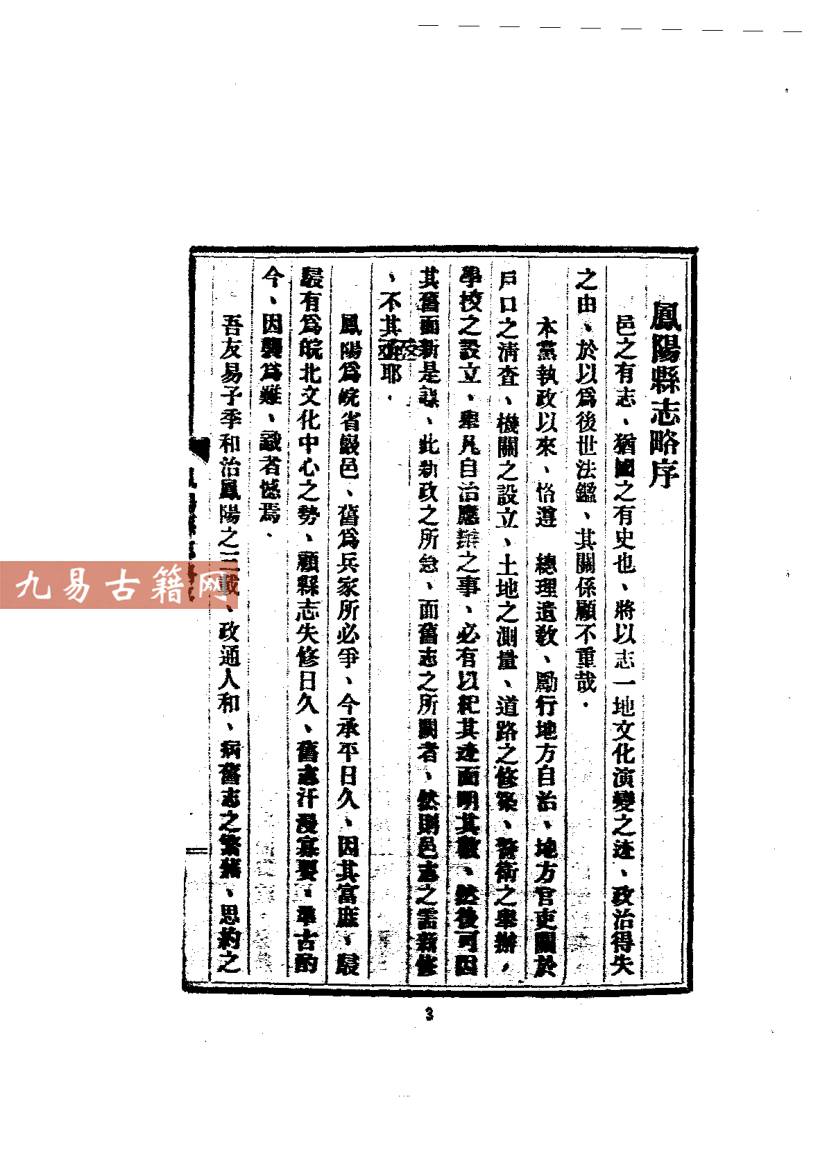 鳳陽縣志略序
邑之有志、猶國之有史也、將以志一地文化演變之迹、政治得失
之由、於以爲後世法鑑、其關係顧不重哉．
本黨執政以來、恪遵　總理遺敎、勵行地方自治、地方官吏關於
戶口之淸查、機關之設立、土地之測量、道路之修築、警衛之舉辦，
學校之設立、舉凡自治應辦之事、必有以紀其迹而明其數、然後可因
其舊而新是謀、此新政之所急、而舊志之所闕者、然則邑志之需新修
、不其亟耶．
鳳陽爲皖省巖邑、舊爲兵家所必爭、今承平日久、因其富庶、駸
駸有爲皖北文化中心之勢、顧縣志失修日久、舊志汗漫寡要、準古酌
今、因襲爲難、識者憾焉．
吾友易子季和治鳳陽之三載、政通人和、病舊志之繁蕪、思約之
一
3
九易古籍网